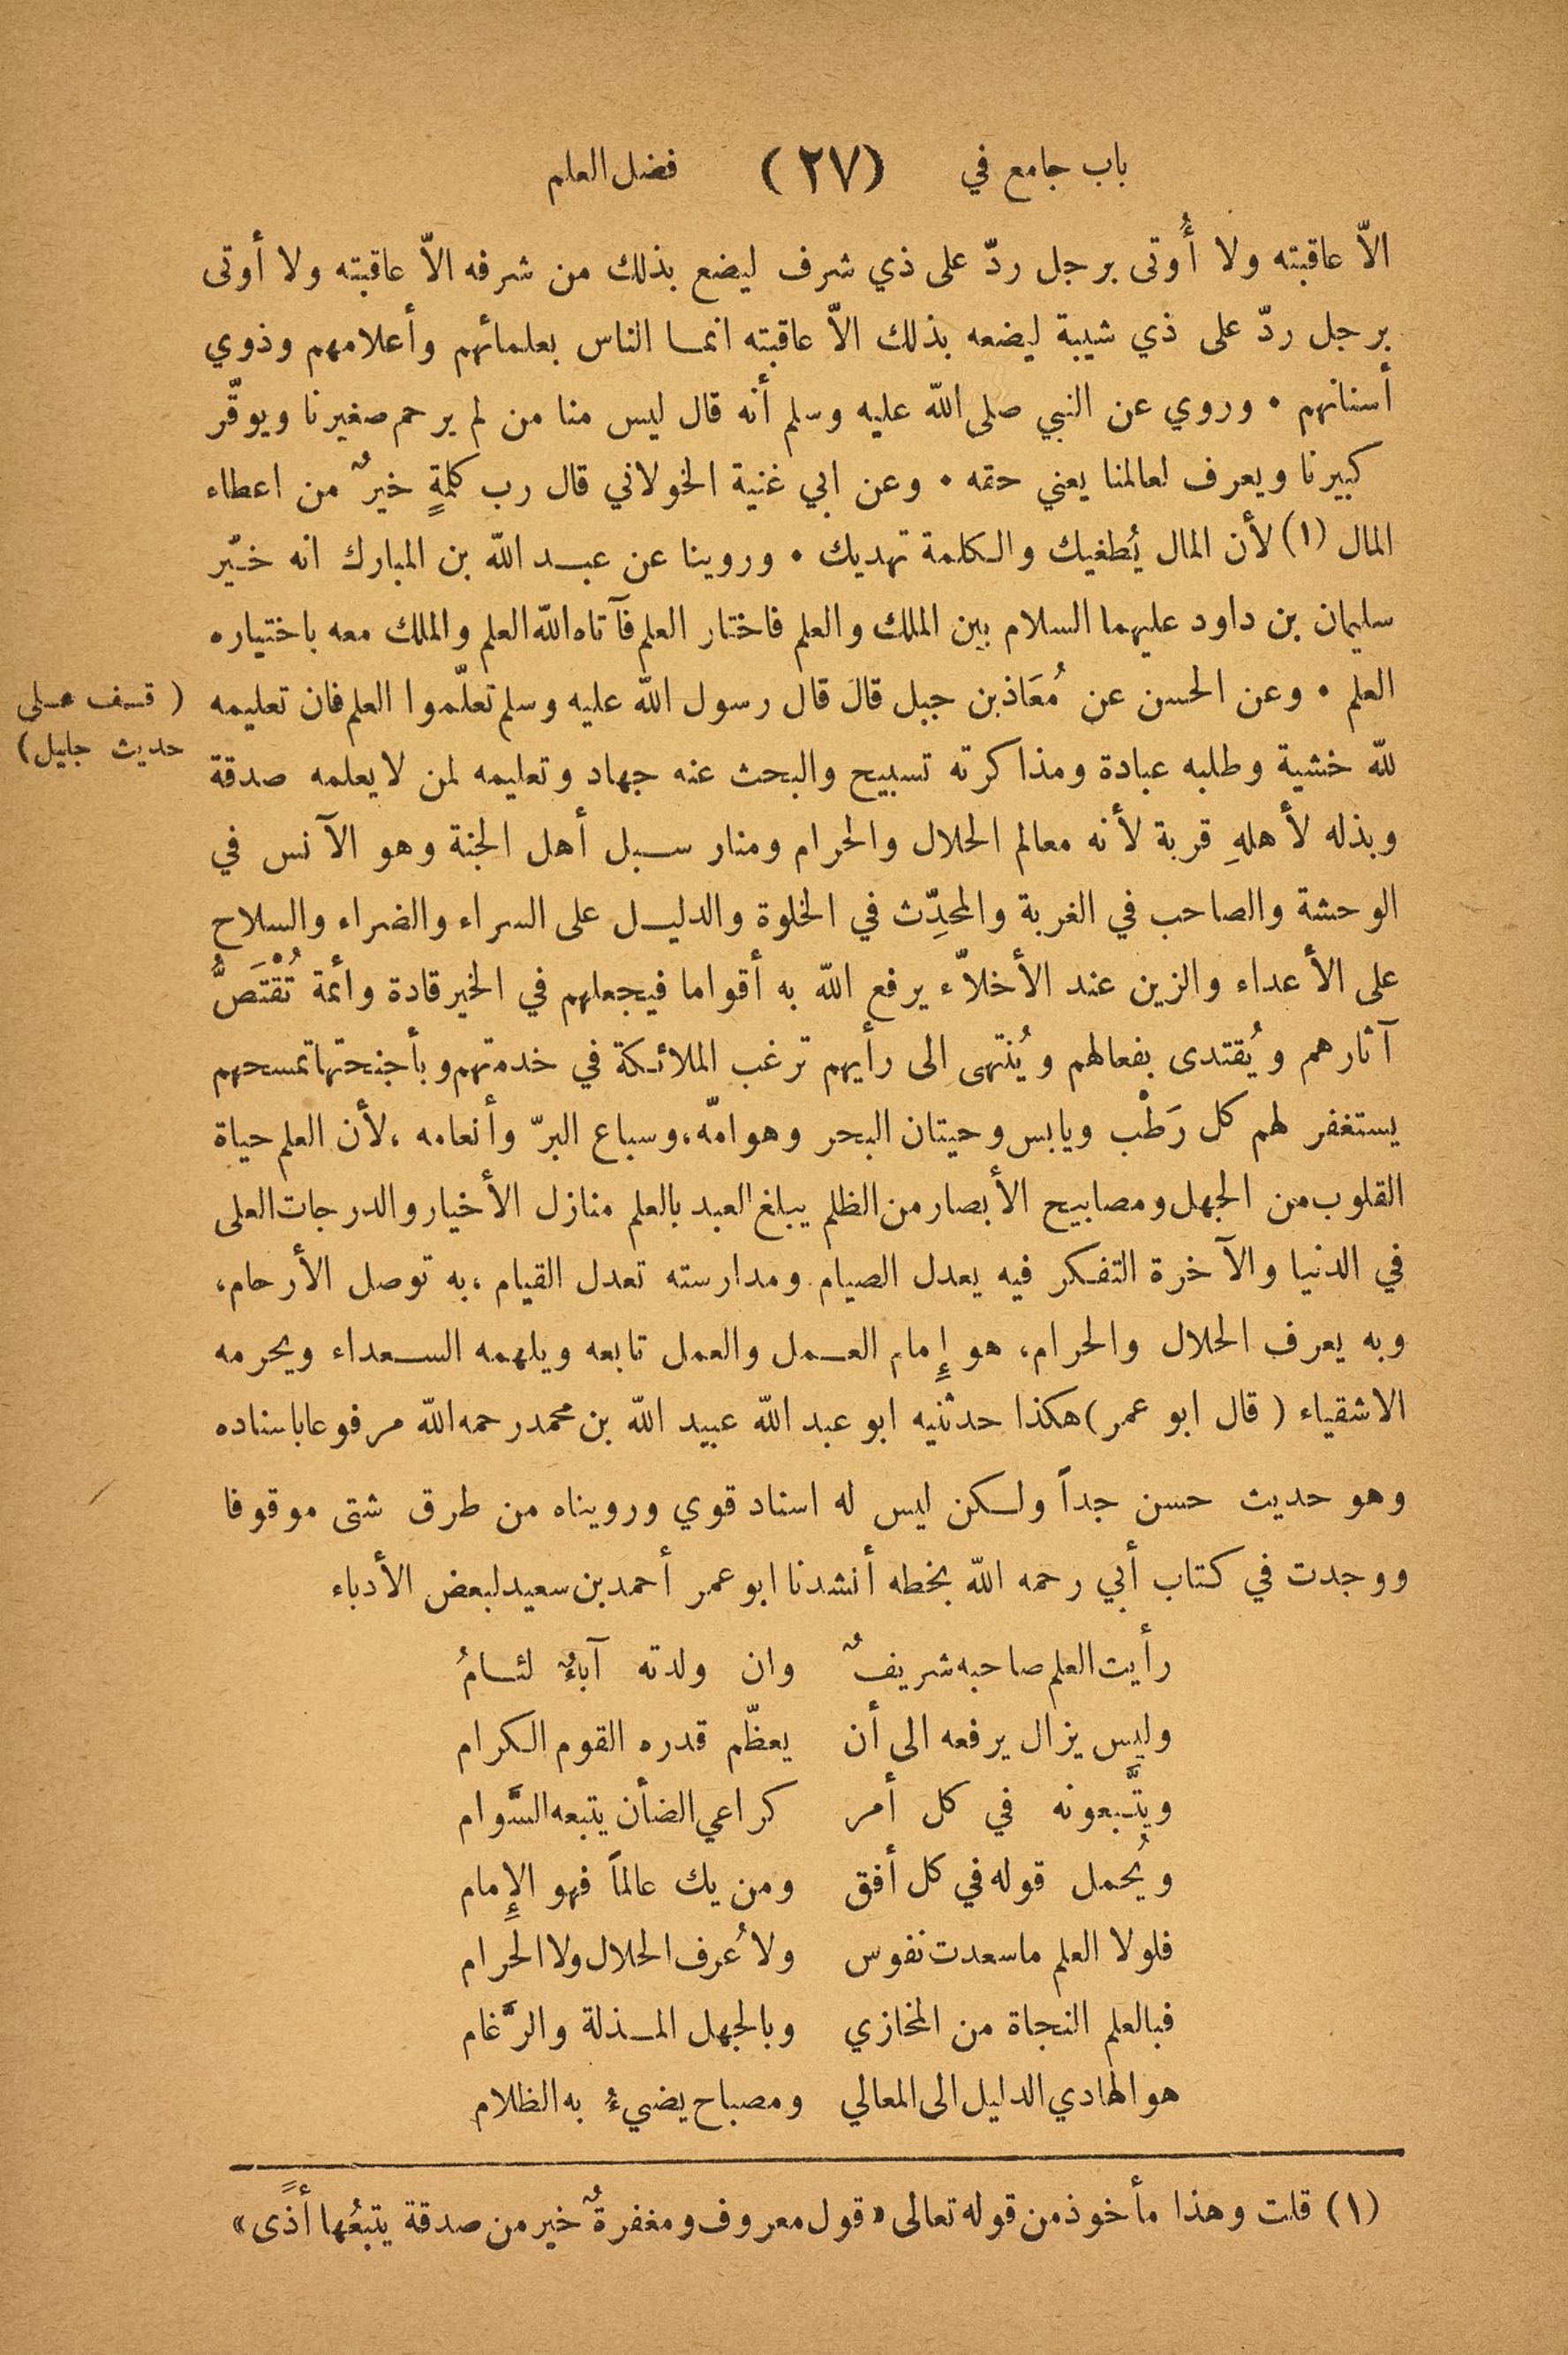 باب جامع في (٢٧) فضل العلم
الاّ عاقبته ولا أُوتى برجل ردّ على ذي شرف ليضع بذلك من شرفه الاّ عاقبته ولا أوتى
برجل ردّ على ذي شيبة ليضعه بذلك الاّ عاقبته انما الناس بعلمائهم وأعلامهم وذوي
أسنانهم • وروي عن النبي صلى الله عليه وسلم أنه قال ليس منا من لم يرحم صغيرنا ويوقّر
كبيرنا ويعرف لعالمنا يعني حقه • وعن ابي غنية الخولاني قال رب كلمةٍ خيرٌ من اعطاء
المال (١) لأن المال يُطغيك والكلمة تهديك • وروينا عن عبد الله بن المبارك انه خيّر
سليمان بن داود عليهما السلام بين الملك والعلم فاختار العلم فآتاه الله العلم والملك معه باختياره
العلم • وعن الحسن عن مُعَاذ بن جبل قالَ قال رسول الله عليه وسلم تعلّموا العلم فان تعليمه
( قف على
حديث جليل)
لله خشية وطلبه عبادة ومذاكرته تسبيح والبحث عنه جهاد وتعليمه لمن لا يعلمه صدقة
وبذله لأهلهِ قربة لأنه معالم الحلال والحرام ومنار سبل أهل الجنة وهو الآنس في
الوحشة والصاحب في الغربة والمحدِّث في الخلوة والدليل على السراء والضراء والسلاح
على الأعداء والزين عند الأخلاّء يرفع الله به أقواما فيجعلهم في الخير قادة وأئمة تُقْتَصُّ
آثارهم ويُقتدى بفعالهم ويُنتهى الى رأيهم ترغب الملائكة في خدمتهم وبأجنحتها تمسحهم
يستغفر لهم كل رَطْب ويابس وحيتان البحر وهوامّه، وسباع البرّ وأنعامه، لأن العلم حياة
القلوب من الجهل ومصابيح الأبصار من الظلم يبلغ العبد بالعلم منازل الأخيار والدرجات العلى
في الدنيا والآخرة التفكر فيه يعدل الصيام ومدارسته تعدل القيام، به توصل الأرحام،
وبه يعرف الحلال والحرام، هو إِمام العمل والعمل تابعه ويلهمه السعداء ويحرمه
الاشقياء ( قال ابو عمر) هكذا حدثنيه ابو عبد الله عبيد الله بن محمد رحمه الله مرفوعا باسناده
وهو حديث حسن جداً ولكن ليس له اسناد قوي ورويناه من طرق شتى موقوفا
ووجدت في كتاب أبي رحمه الله بخطه أنشدنا ابو عمر أحمد بن سعيد لبعض الأدباء
رأيت العلم صاحبه شريفٌ وان ولدته آباءٌ لئامُ
وليس يزال يرفعه الى أن يعظّم قدره القوم الكرام
ويتَّبعونه في كل أمر كراعي الضأن يتبعه السَّوام
ويُحمل قوله في كل أفق ومن يك عالماً فهو الإِمام
فلولا العلم ما سعدت نفوس ولا عُرف الحلال ولا الحَرام
فبالعلم النجاة من المخازي وبالجهل المذلة والرَّغام
هو الهادي الدليل الى المعالي ومصباح يضيءُ به الظلام
(١) قلت وهذا مأخوذ من قوله تعالى «قول معروف ومغفرةٌ خير من صدقة يتبعُها أذًى»